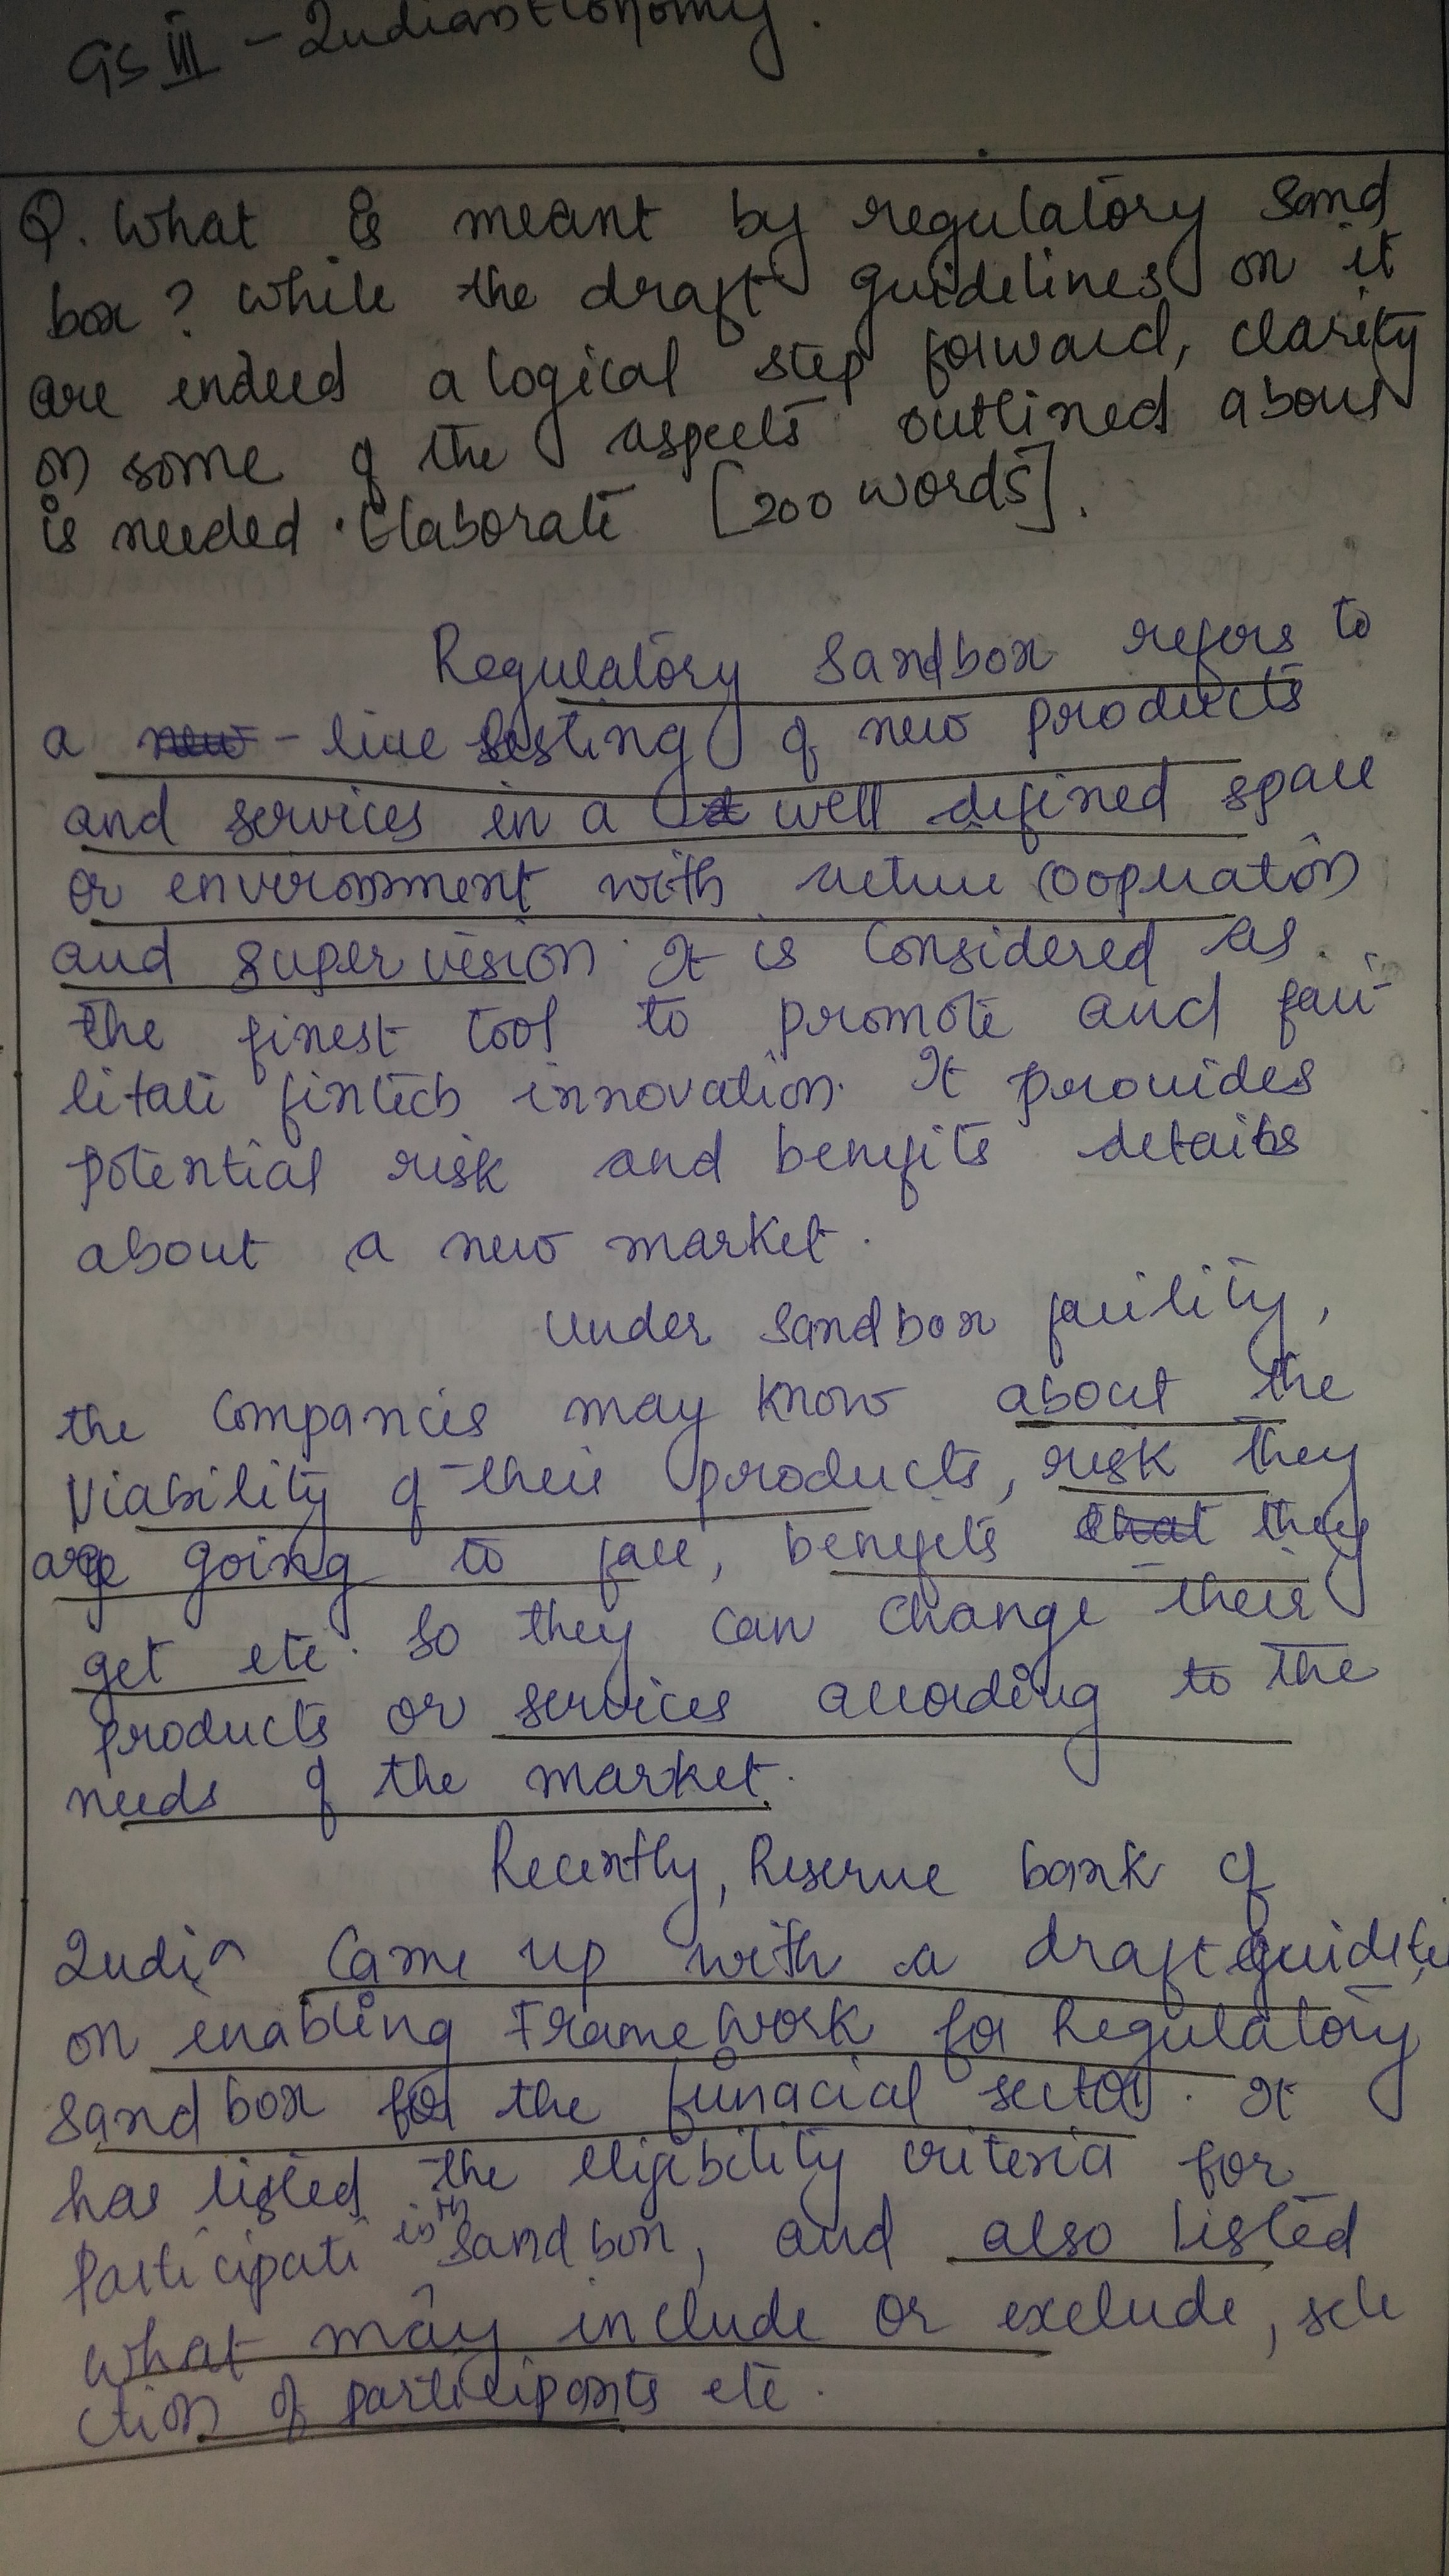 GS III - Indian Economy.
Q. What is meant by regulatory Sand
box? While the draft guidelines on it
are indeed a logical step forward, clarity
on some of the aspects outlined about
is needed. Elaborate [200 words].
Regulatory Sandbox refers to
a new - live testing of new products
and services in a well defined space
or environment with active cooperation
and supervision. It is considered as
the finest tool to promote and faci-
litate fintech innovation. It provides
potential risk and benefits details
about a new market.
Under Sandbox facility,
the Companies may know about the
Viability of their products, risk they
are going to face, benefits that they
get etc. So they can change their
products or services according to the
needs of the market.
Recently, Reserve bank of
India Came up with a draft
on enabling Framework for Regulatory
Sandbox for the funacial sector. It
has listed the eligibility criteria for
Participate in the Sandbox, and also listed
what may include or exclude, sele
ction of participants etc.